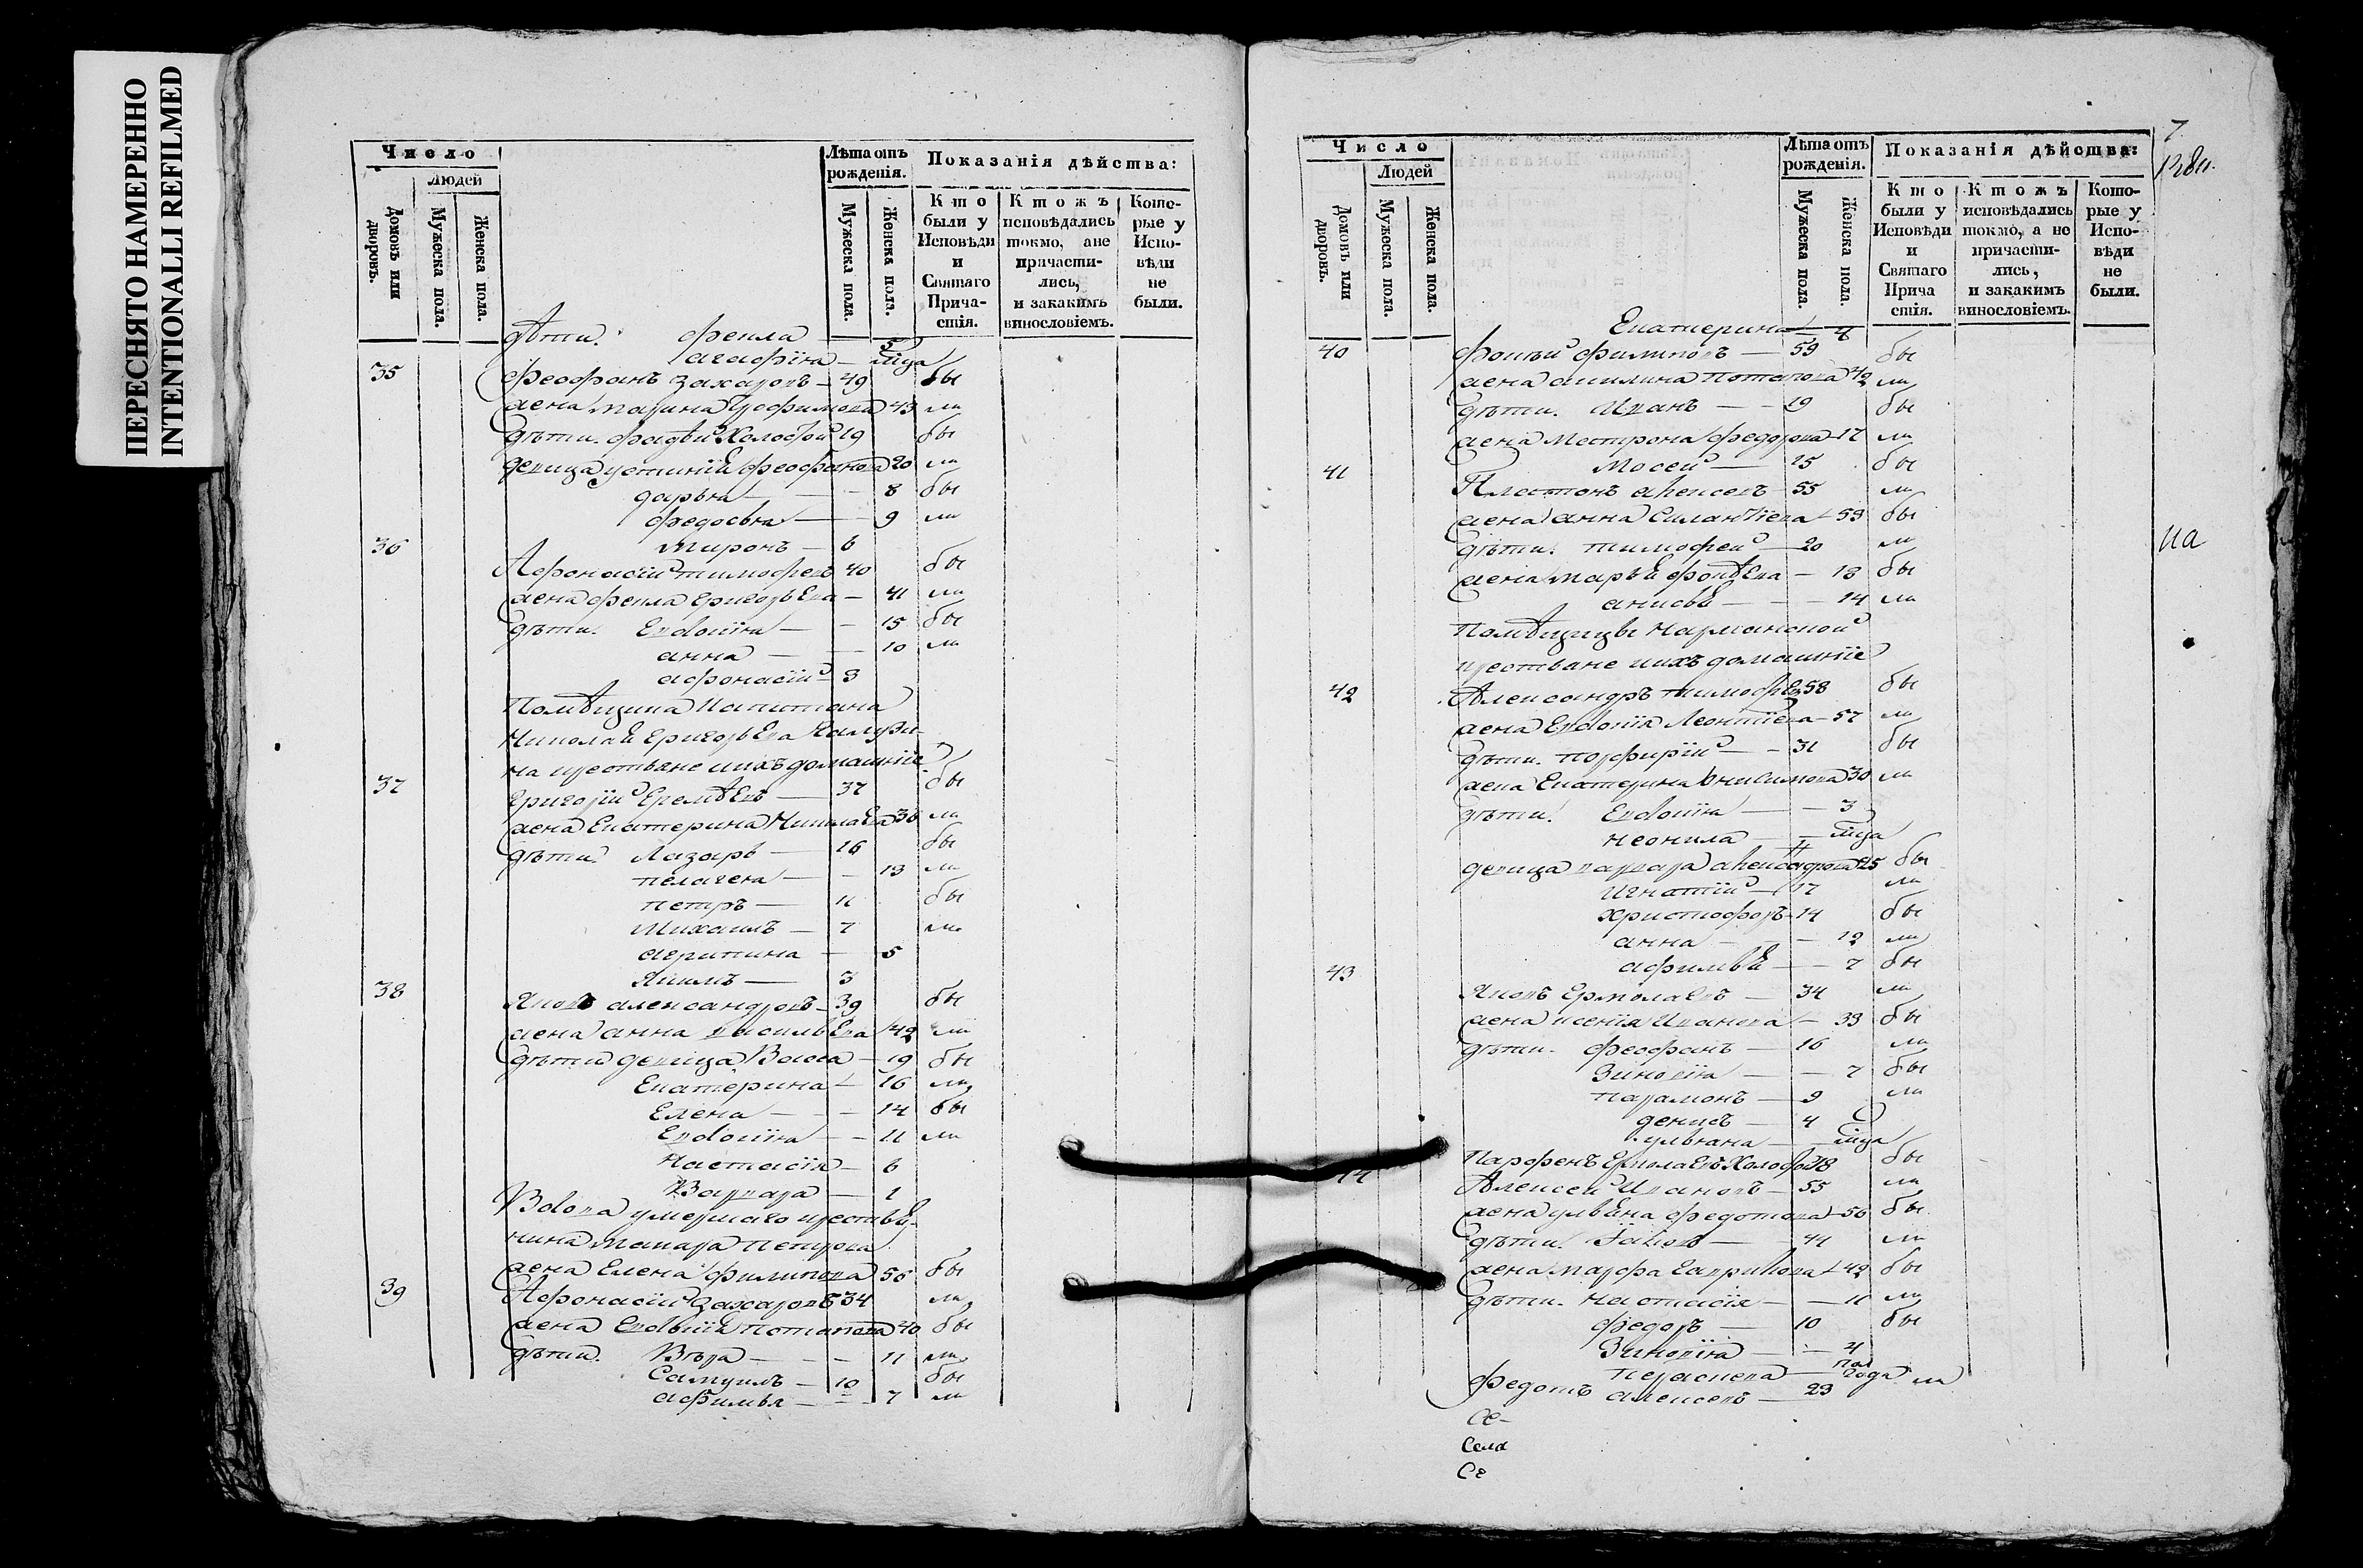 ПЕРЕСНЯТО НАМЕРЕННО
INTENTIONALLI REFILMED
Число
Людей
Домовъ или дворовъ.
Мужеска пола.
Женска пола.
Лѣта отъ рожденія.
Мужеска пола.
Женска пола.
Показанія дѣйства:
Кто были у Исповѣди и Святаго Причастія.
Ктожъ исповѣдались токмо, а не причастились, и закакимъ винословіемъ.
Которые у Исповѣди не были.
дѣти. фекла — 5
агафіа — мца
35 Феофанъ Захаровъ — 49 бы
жена марина 43 ли
дѣти. Холостой 19 бы
девица устиніа феофанова 20 ли
дарьа — 8 бы
федосьа — 9 ли
36 миронъ — 6
Афонасій тимофеевъ 40 бы
жена фекла григорьева — 41 ли
дѣти. Евдокіа — 15 бы
анна — 10 ли
афонасій 3
Помѣщика капитана
николая григорьева
на крестьяне ихъ домашніе
37 григорій Еремѣевъ — 37 бы
жена Екатерина Николаева 36 ли
дѣти. Лазарь — 16 бы
пелагеа — 13 ли
петръ — 11 бы
Михаилъ — 7 ли
агрипина — 5
Якимъ — 3
38 Яковъ александровъ — 39 бы
жена анна васильева 42 ли
дѣти девица Васса — 19 бы
Екатерина — 16 ли
Елена — 14 бы
Евдокіа — 11 ли
Настасіа — 6
Варвара — 1
Вдова умершаго крестья-
нина макара петрова
жена Елена филипова 56 бы
39 Афонасій Захаровъ 34 ли
жена Потапова 40 бы
дѣти. Вѣра — 11 ли
Самуилъ — 10 бы
афимьа — 7 ли
Число
Людей
Домовъ или дворовъ.
Мужеска пола.
Женска пола.
Лѣта отъ рожденія.
Мужеска пола.
Женска пола.
Показанія дѣйства:
Кто были у Исповѣди и Святаго Причастія.
Ктожъ исповѣдались токмо, а не причастились, и закакимъ винословіемъ.
Которые у Исповѣди не были.
7
Екатерина — 4
40 Фокѣй филиповъ — 59 бы
жена акилина потапова 42 ли
дѣти. Иванъ — 19 бы
жена Местрона федорова 17 ли
Мосей — 15 бы
41 Платонъ алексеевъ 55 ли
жена анна Силантіева 53 бы
дѣти. тимофей — 20 ли
жена марья — 18 бы
анисья — 14 ли
Помѣщицы Нарманской
крестьяне ихъ домашніе
42 Александръ тимофѣевъ 58 бы
жена Евдокія Леонтіева — 57 ли
дѣти. порфирій — 31 бы
жена Екатерина Онисимова 30 ли
дѣти. Евдокіа — 3
неонила — мца
девица варвара 25 бы
игнатій — 17 ли
христофоръ — 14 бы
анна — 12 ли
афимья — 7 бы
43 Яковъ Ермолаевъ — 34 ли
жена ксенія Иванова — 33 бы
дѣти. феофанъ — 16 ли
Зиновіа — 7 бы
парамонъ — 9 ли
денисъ — 4
ульяна — мца
Парфенъ Ермолаевъ бы
44 Алексей Ивановъ — 55 ли
жена ульяна федотова 56 бы
дѣти. — 41 ли
жена марфа 42 бы
дѣти. настасія — 11 ли
федоръ — 10 бы
Зиновіа — 4
параскева — пол года
федотъ алексеевъ — 23 ли
Се-
Села
Се
на